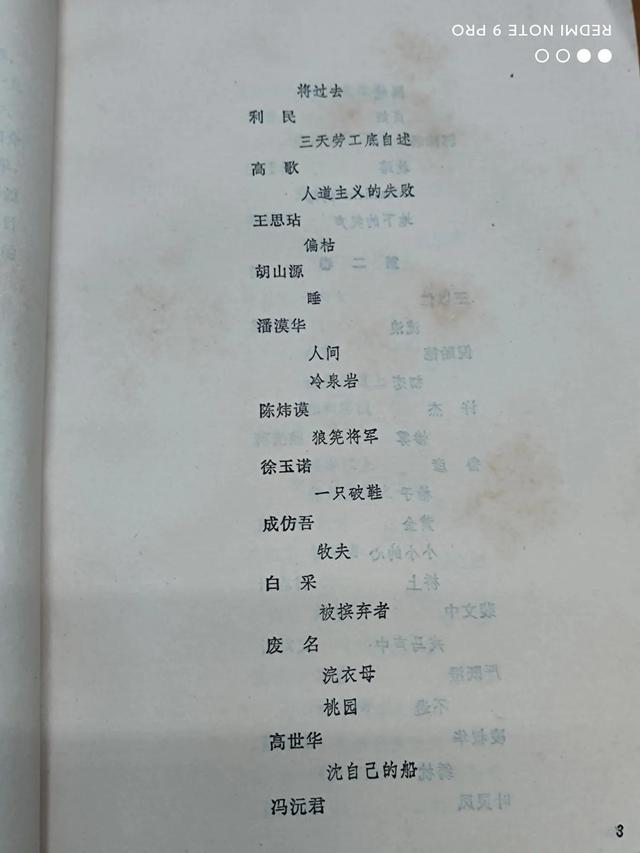 REDMI NOTE 9 PRO
将过去
利 民
三天劳工底自述
高 歌
人道主义的失败
王思玷
偏枯
胡山源
睡
潘漠华
人间
冷泉岩
陈炜谟
狼筅将军
徐玉诺
一只破鞋
成仿吾
牧夫
白 采
被摈弃者
废 名
浣衣母
桃园
高世华
沈自己的船
冯沅君
3